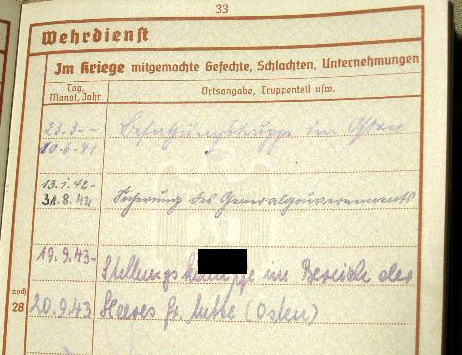 33
Wehrdienst
Im Kriege mitgemachte Gefechte, Schlachten, Unternehmungen
Tag, Monat, Jahr
Ortsangabe, Truppenteil usw.
10.6.41
im Osten
13.1.42-
31.8.42 Sicherung des Generalgouvernements
19.9.43-
im Bereich der
noch
28
20.9.43 Heeres Gr. Mitte (Osten)